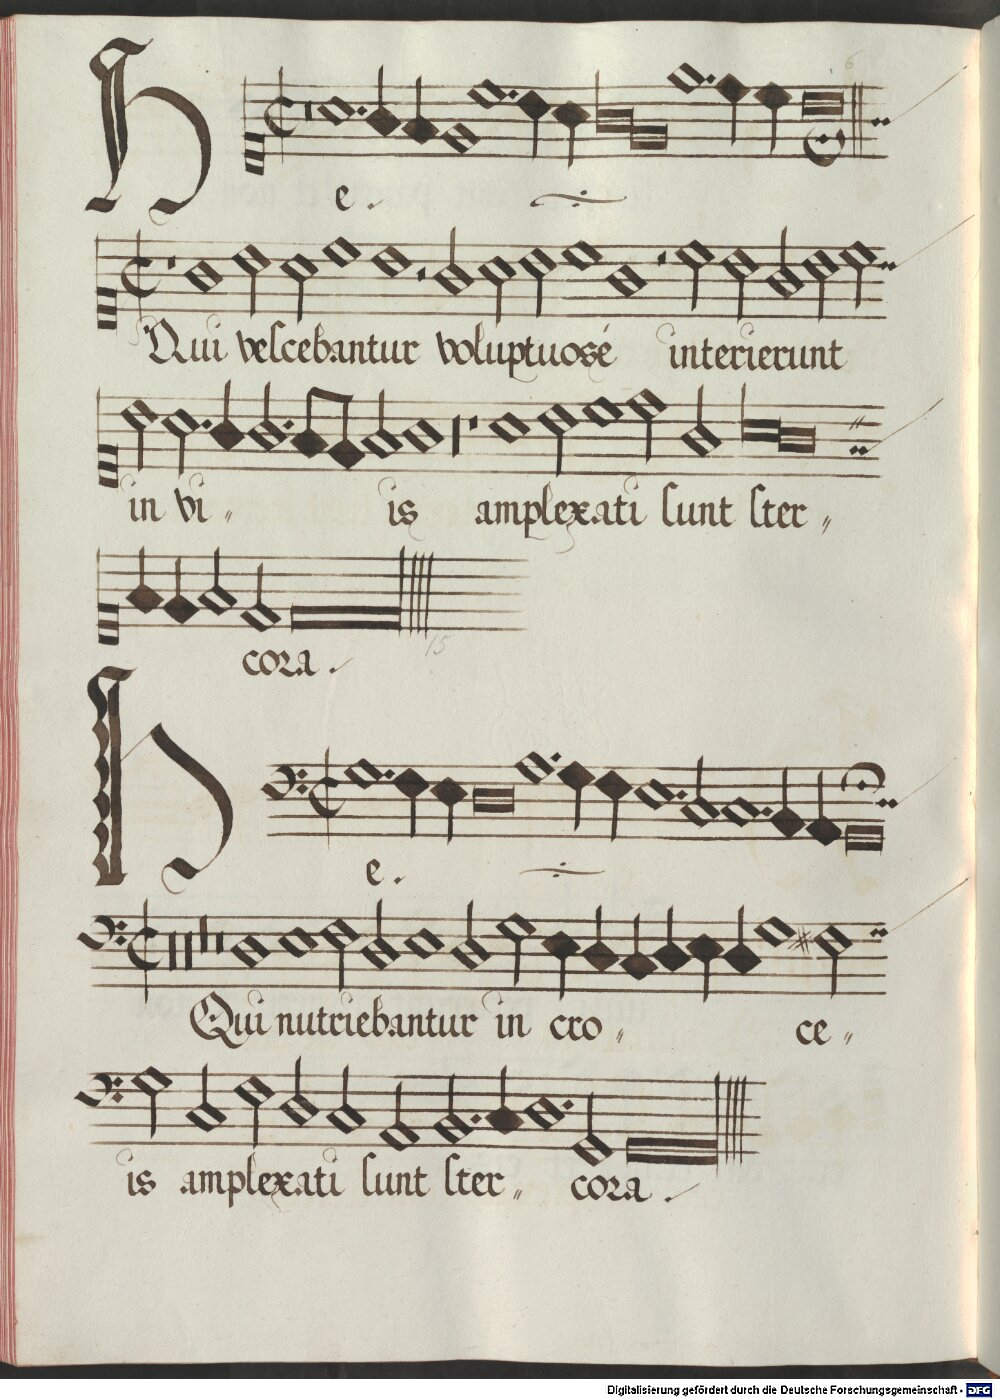 6
He.
Qui vescebantur voluptuosé interierunt
in vi〃 is amplexati sunt ster〃
cora.
15
He.
Qui nutriebantur in cro〃 ce〃
is amplexati sunt ster〃 cora.
Digitalisierung gefördert durch die Deutsche Forschungsgemeinschaft - DFG